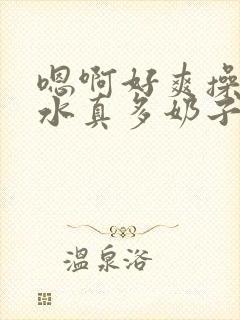 嗯啊好爽操
水真多奶子
温泉浴